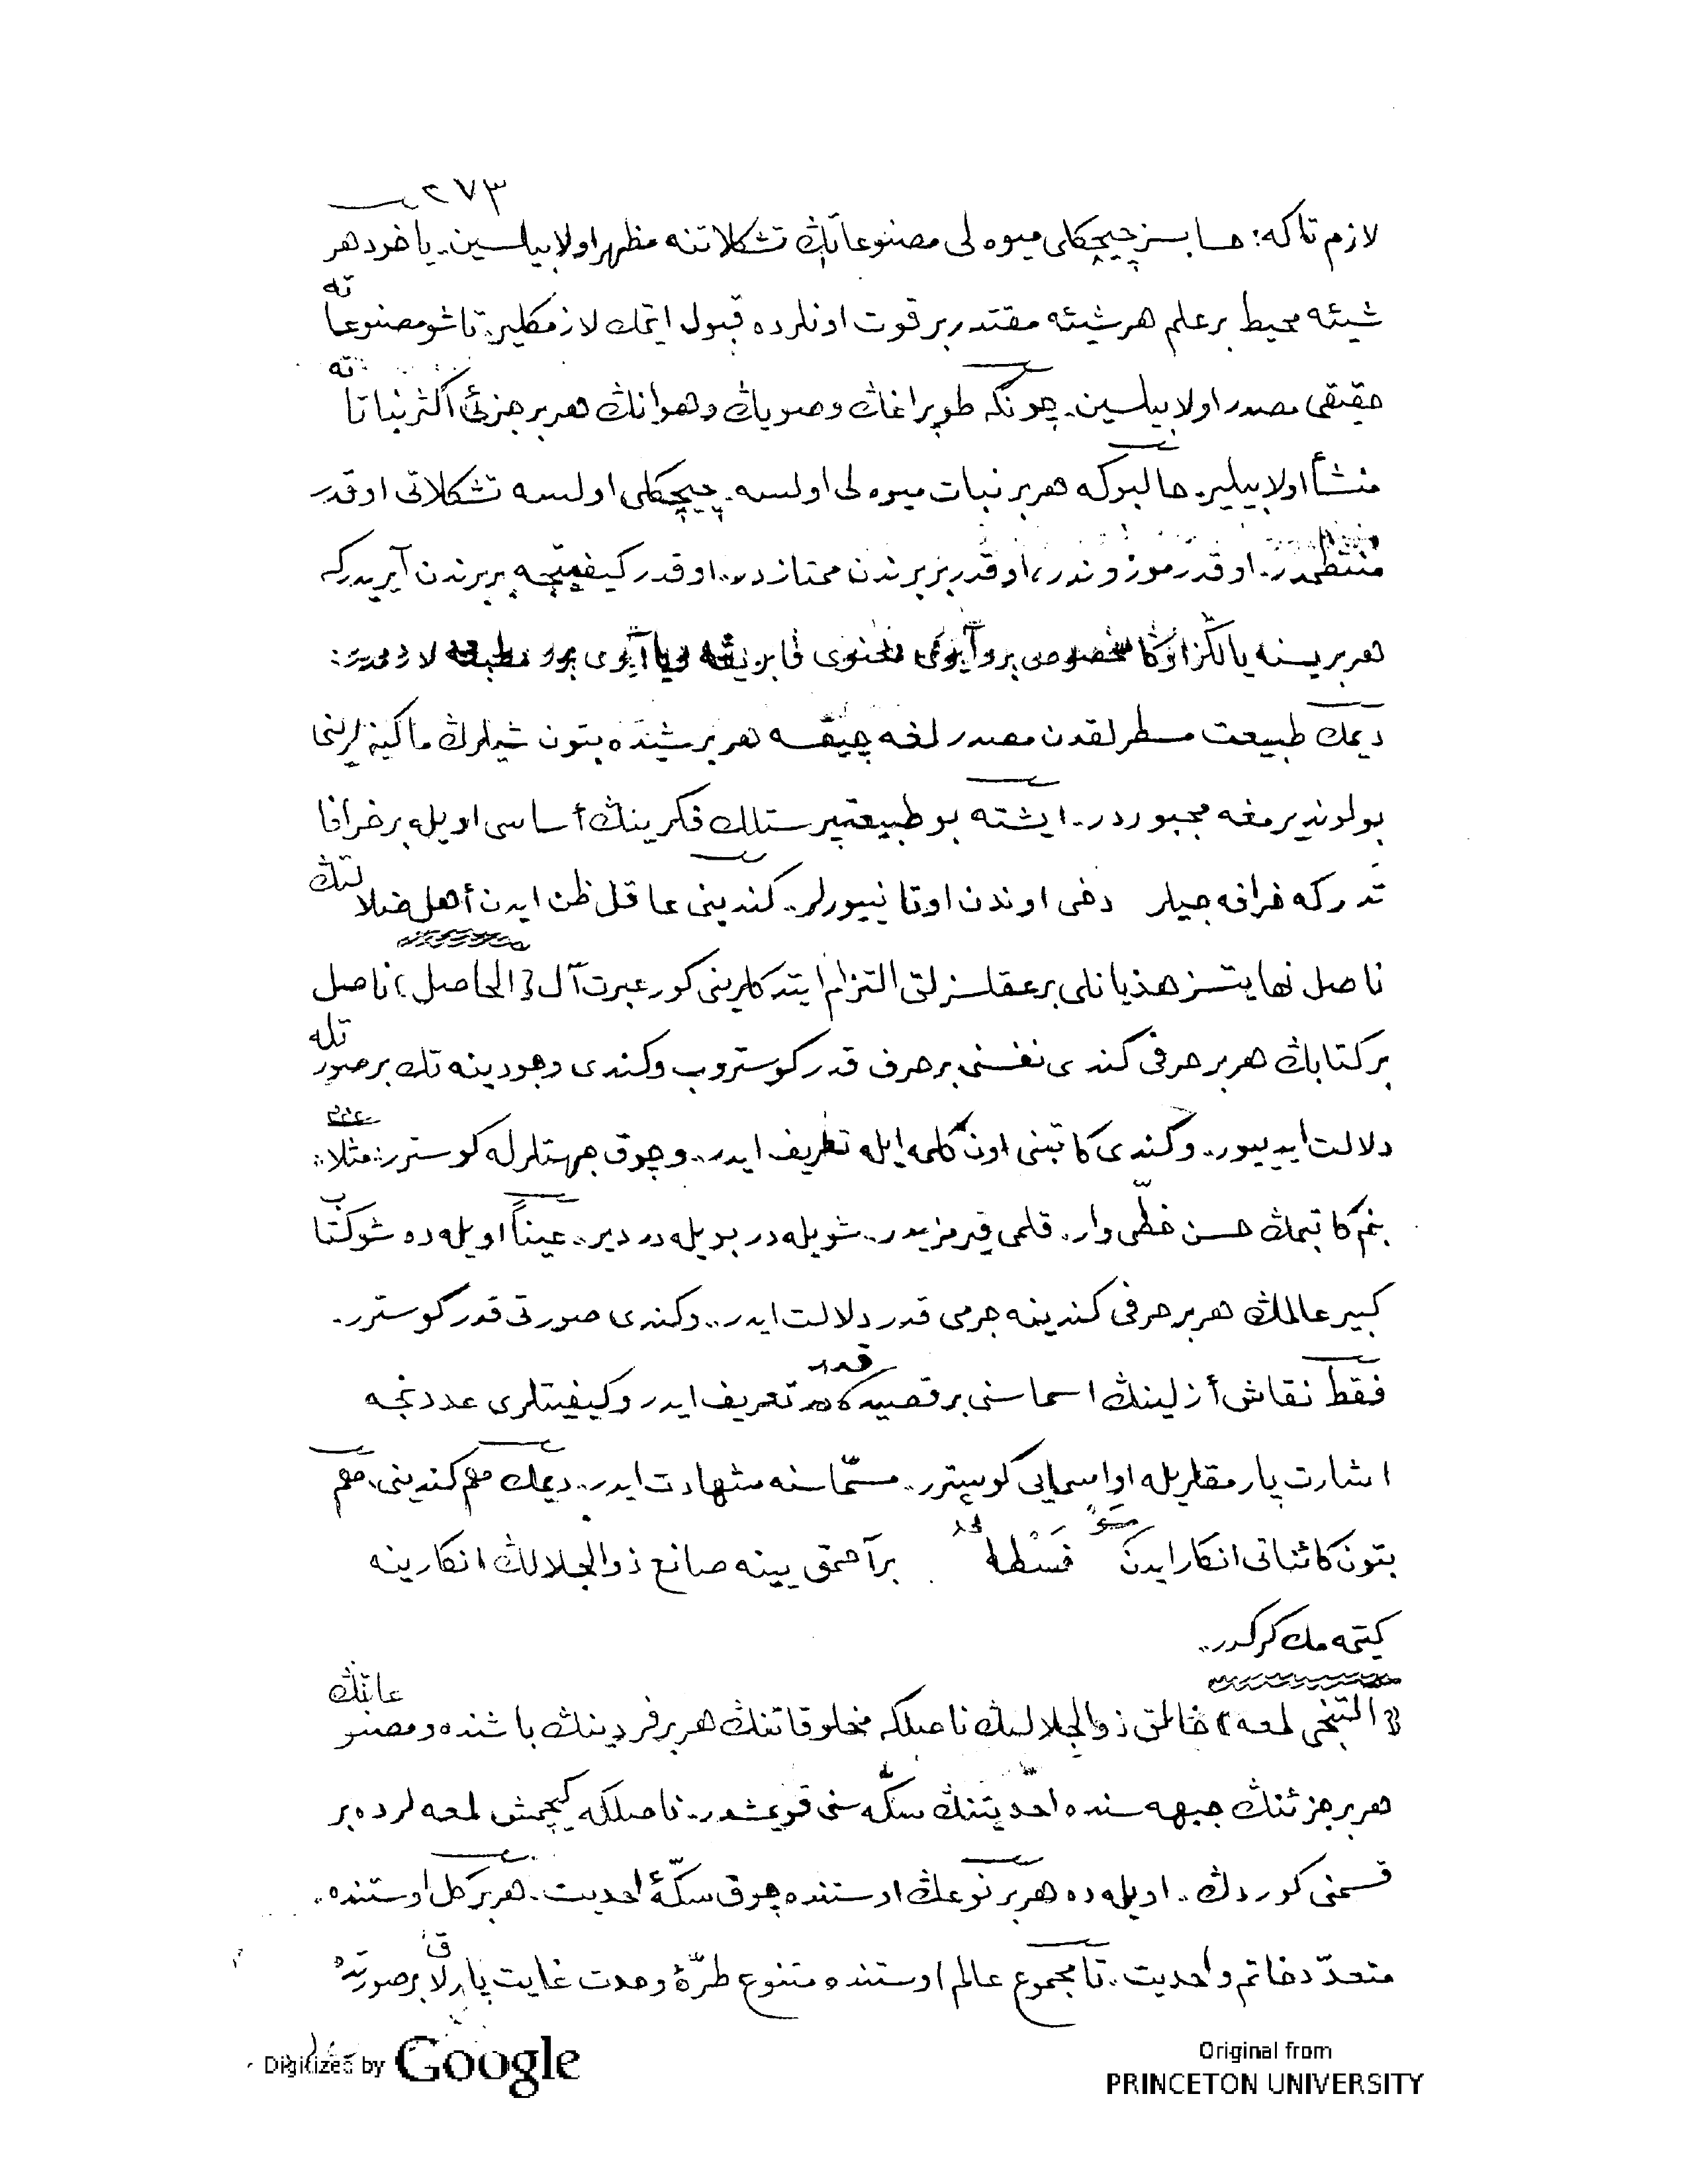 ٢٧٣
لازم تاكه: حسابسز چيچكلى ميوه لى مصنوعاتڭ تشكلاتنه مظهر اولا بيلسين.. ياخود هر
شيئه محيط بر علم هر شيئه مقتدر بر قوت اونلرده قبول ايتمك لازمكلير. تا شو مصنوعاته
حقيقى مصدر اولا بيلسين. چونكه طوپراغڭ وصويڭ وهوانڭ هر بر جزئى اكثر نباتاته
منشأ اولا بيلير. حالبوكه هر بر نبات ميوه لى اولسه. چيچكلى اولسه تشكلاتى اوقدر
منتظمدر. اوقدر موزوندر، اوقدر بربرندن ممتازدر.. اوقدر كيفيتجه بربرندن آيريدركه
هر بريسنه يالڭز اوڭا مخصوص بر آيرى معنوى فابريقه ويا آيرى بر مطبعه لازمدر:
ديمك طبيعت مسطرلقدن مصدرلغه چيقسه هر بر شيئده بتون شيلرڭ ماكينه لرينى
بولونديرمغه مجبوردر. ايشته بو طبيعتپرستلك فكرينڭ أساسى اويله بر خرافا
تدر كه خرافه جيلر دخى اوندن اوتانييورلر.. كندينى عاقل ظن ايدن أهل ضلالتڭ
ناصل نهايتسز هذيانلى بر عقلسزلق التزام ايتدكلرينى كور عبرت آل ﴿الحاصل﴾ ناصل
بر كتابڭ هر بر حرفى كندى نفسنى بر حرف قدر كوستروب وكندى وجودينه تك بر صورتله
دلالت ايدييور.. وكندى كاتبنى اون كلمه ايله تعريف ايدر.. وچوق جهتلرله كوسترر: مثلا:
بنم كاتبمڭ حسن خطّى وار. قلمى قيرمزيدر.. شويله در بويله در دير.. عيناً اويله ده شو كتاب
كبير عالمڭ هر بر حرفى كندينه جرمى قدر دلالت ايدر.. وكندى صورتى قدر كوسترر.
فقط نقاش أزلينڭ اسماسنى بر قصيده قدر تعريف ايدر وكيفيتلرى عددنجه
اشارت پارمقلريله او اسمايى كوسترر.. مسمّاسنه شهادت ايدر.. ديمك هم كندينى، هم
بتون كائناتى انكار ايدن سوفسطائى بر آحمق يينه صانع ذوالجلالڭ انكارينه
كيتمه مك كركدر..
﴿التنجى لمعه﴾ خالق ذوالجلالڭ ناصلكه مخلوقاتنڭ هر بر فردينڭ باشنده ومصنوعاتنڭ
هر بر جزئنڭ جبهه سنده احديتنڭ سكّه سنى قويمشدر.. ناصلكه كچمش لمعه لرده بر
قسمنى كوردڭ.. اويله ده هر بر نوعڭ اوستنده چوق سكّۀ احديت. هر بر كل اوستنده..
متعدّد خاتم واحديت.. تا مجموع عالم اوستنده متنوع طرّۀ وحدت غايت پارلاق بر صورتده
Digitized by Google
Original from
PRINCETON UNIVERSITY